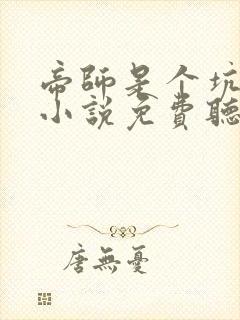 帝師是个坑
小說免費聽
唐無憂